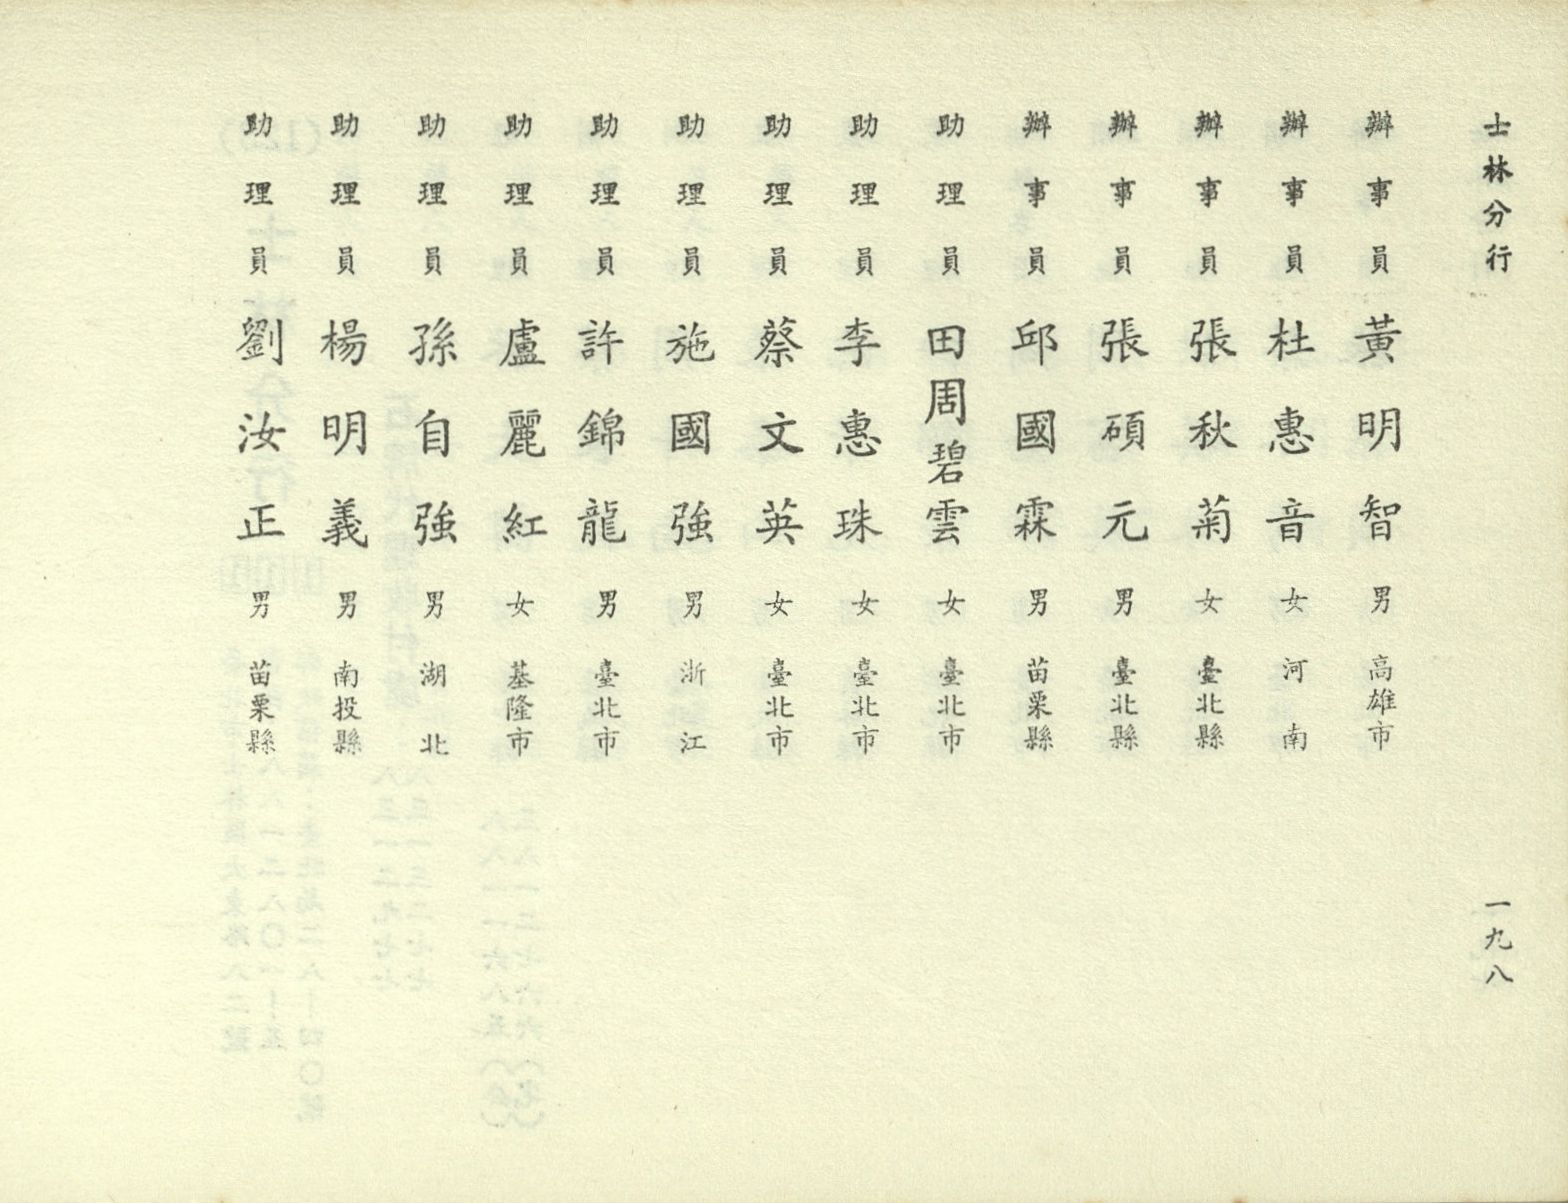 士林分行
辦事員 黃明智 男 高雄市
辦事員 杜惠音 女 河南
辦事員 張秋菊 女 臺北縣
辦事員 張碩元 男 臺北縣
辦事員 邱國霖 男 苗栗縣
助理員 田周碧雲 女 臺北市
助理員 李惠珠 女 臺北市
助理員 蔡文英 女 臺北市
助理員 施國強 男 浙江
助理員 許錦龍 男 臺北市
助理員 盧麗紅 女 基隆市
助理員 孫自強 男 湖北
助理員 楊明義 男 南投縣
助理員 劉汝正 男 苗栗縣
一九八